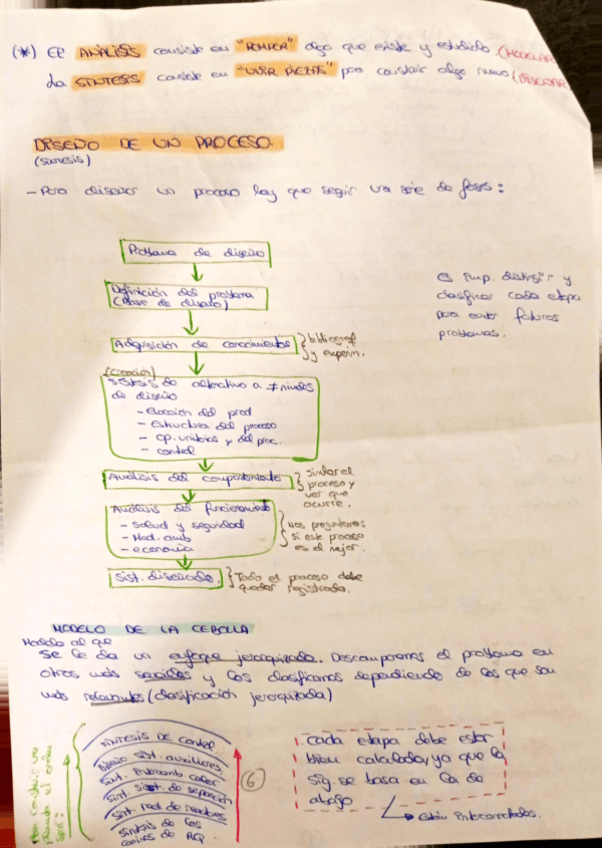 (*) El ANÁLISIS consiste en "ROMPER" algo que existe y estudiarlo (MODELAR)
La SÍNTESIS consiste en "UNIR PIEZAS" para construir algo nuevo (DISEÑAR)
DISEÑO DE UN PROCESO.
(SÍNTESIS)
- Para diseñar un proceso hay que seguir una serie de fases:
Problema de diseño
Definición del problema
(Base de diseño)
Adquisición de conocimientos } bibliograf
y experim.
(creación)
Síntesis de alternativa a ≠ niveles
de diseño
- Elección del prod
- Estructura del proceso
- Op. unitarias y del proc.
- control
Análisis del comportamiento } simular el
proceso y
ver que
ocurre.
Análisis del funcionamiento
- Salud y seguridad
- Med. amb
- economía
} nos preguntamos
si este proceso
es el mejor.
Sist. diseñado. } Todo el proceso debe
quedar registrado.
Es imp. distinguir y
clasificar cada etapa
para evitar futuros
problemas.
MODELO DE LA CEBOLLA
Modelo al que
se le da un enfoque jerarquizado. Descomponemos el problema en
otros más sencillos y los clasificamos dependiendo de los que son
más relevantes (clasificación jerarquizada)
Para construir una
planta el orden
será:
SÍNTESIS DE CONTROL
Diseño sist. auxiliares
Sint. Intercamb calor
Sint. sist. de separación
Sint. red de reactores
Síntesis de los
caminos de RQ
6
cada etapa debe estar
bien calculada, ya que la
sig se basa en la de
abajo
Están interconectadas.